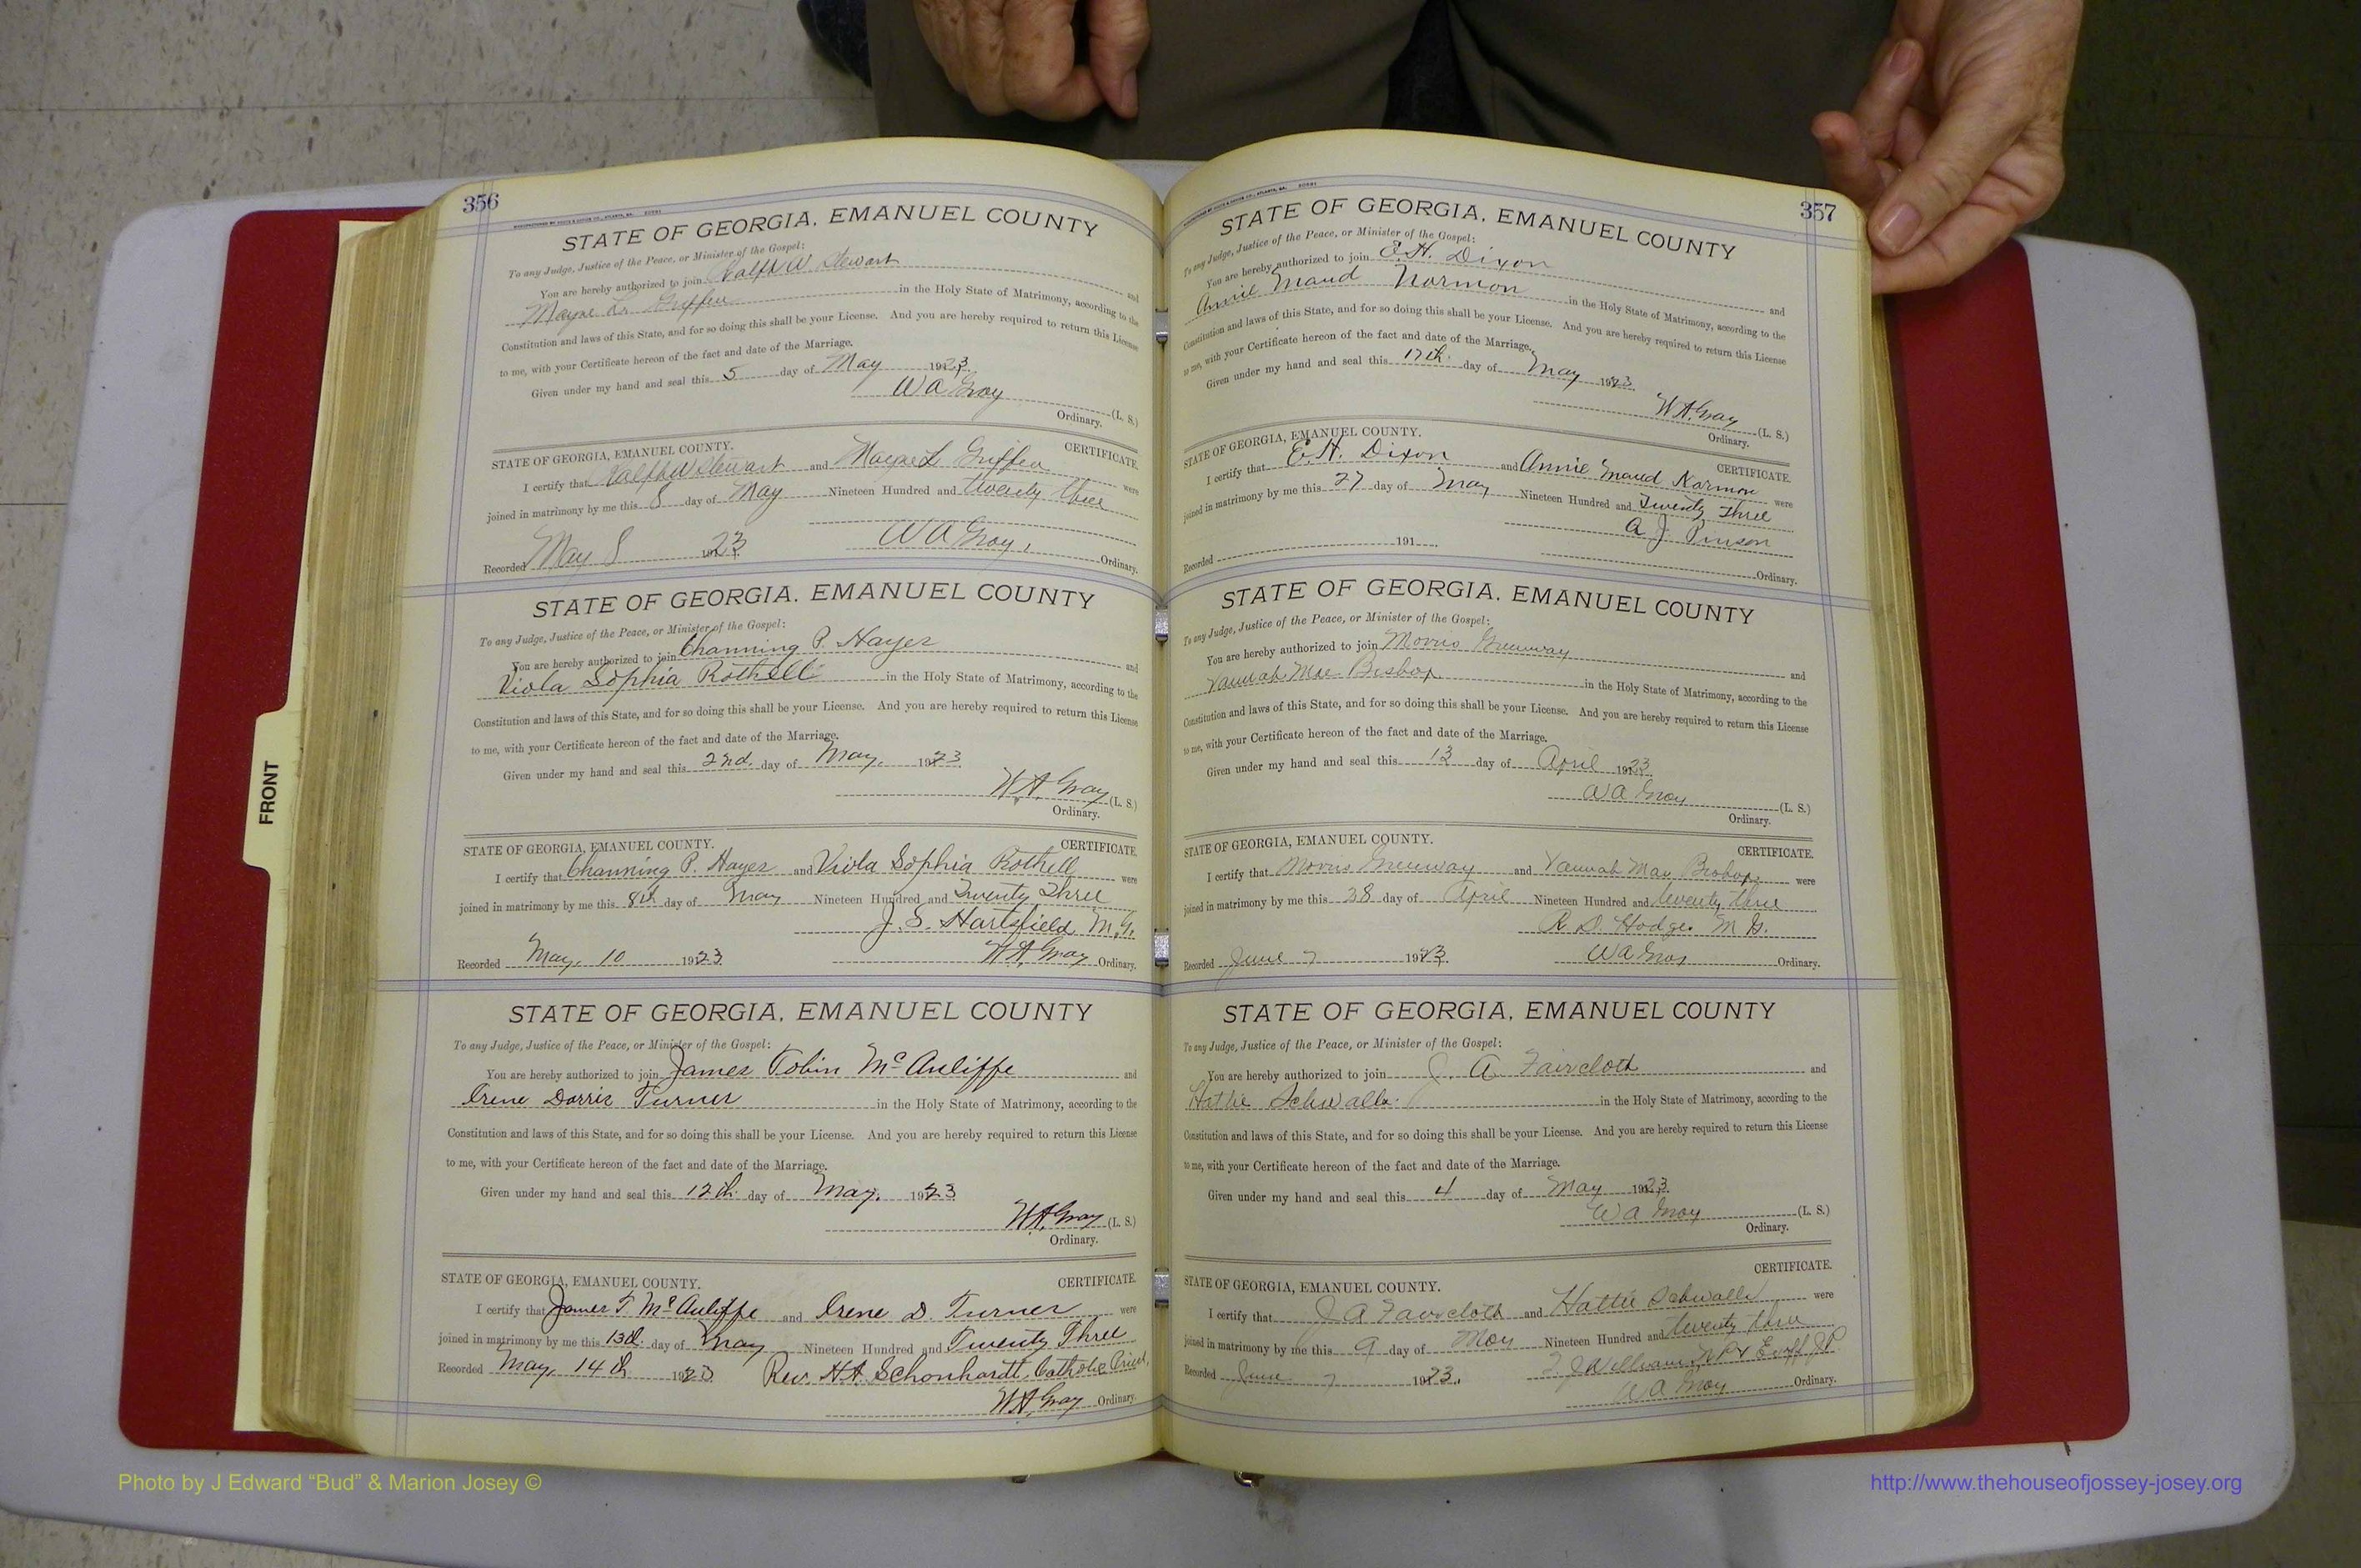 356
STATE OF GEORGIA, EMANUEL COUNTY
To any Judge, Justice of the Peace, or Minister of the Gospel:
You are hereby authorized to join Ralph W Stewart and
Mayne L. Griffin in the Holy State of Matrimony, according to the
Constitution and laws of this State, and for so doing this shall be your License. And you are hereby required to return this License
to me, with your Certificate hereon of the fact and date of the Marriage.
Given under my hand and seal this 5 day of May 1923.
W A Gray (L. S.)
Ordinary.
STATE OF GEORGIA, EMANUEL COUNTY. CERTIFICATE.
I certify that Ralph W Stewart and Mayne L Griffin were
joined in matrimony by me this 8 day of May Nineteen Hundred and twenty three
Recorded May 8 1923 W A Gray, Ordinary.
STATE OF GEORGIA, EMANUEL COUNTY
To any Judge, Justice of the Peace, or Minister of the Gospel:
You are hereby authorized to join Channing P. Hayes and
Viola Sophia Rothell in the Holy State of Matrimony, according to the
Constitution and laws of this State, and for so doing this shall be your License. And you are hereby required to return this License
to me, with your Certificate hereon of the fact and date of the Marriage.
Given under my hand and seal this 2nd. day of May, 1923
W.A. Gray (L. S.)
Ordinary.
STATE OF GEORGIA, EMANUEL COUNTY. CERTIFICATE.
I certify that Channing P. Hayes and Viola Sophia Rothell were
joined in matrimony by me this 8th day of May Nineteen Hundred and Twenty Three
J. S. Hartsfield M.G.
Recorded May, 10 1923 W.A. Gray Ordinary.
STATE OF GEORGIA, EMANUEL COUNTY
To any Judge, Justice of the Peace, or Minister of the Gospel:
You are hereby authorized to join James Tobin McAuliffe and
Irene Dorris Turner in the Holy State of Matrimony, according to the
Constitution and laws of this State, and for so doing this shall be your License. And you are hereby required to return this License
to me, with your Certificate hereon of the fact and date of the Marriage.
Given under my hand and seal this 12th. day of May, 1923
W.A. Gray (L. S.)
Ordinary.
STATE OF GEORGIA, EMANUEL COUNTY. CERTIFICATE.
I certify that James T. McAuliffe and Irene D. Turner were
joined in matrimony by me this 13th. day of May Nineteen Hundred and Twenty Three
Recorded May, 14th 1923 Rev. H.A. Schonhardt, Catholic Priest,
W.A. Gray Ordinary.
357
STATE OF GEORGIA, EMANUEL COUNTY
To any Judge, Justice of the Peace, or Minister of the Gospel:
You are hereby authorized to join E.H. Dixon and
Annie Maud Norman in the Holy State of Matrimony, according to the
Constitution and laws of this State, and for so doing this shall be your License. And you are hereby required to return this License
to me, with your Certificate hereon of the fact and date of the Marriage.
Given under my hand and seal this 17th. day of May 1923
W.A. Gray (L. S.)
Ordinary.
STATE OF GEORGIA, EMANUEL COUNTY. CERTIFICATE.
I certify that E.H. Dixon and Annie Maud Norman were
joined in matrimony by me this 27 day of May Nineteen Hundred and Twenty Three
A. J. Pinson
Recorded 191 Ordinary.
STATE OF GEORGIA, EMANUEL COUNTY
To any Judge, Justice of the Peace, or Minister of the Gospel:
You are hereby authorized to join Morris Greenway and
Vannah Mae Bishop in the Holy State of Matrimony, according to the
Constitution and laws of this State, and for so doing this shall be your License. And you are hereby required to return this License
to me, with your Certificate hereon of the fact and date of the Marriage.
Given under my hand and seal this 13 day of April 1923
W A Gray (L. S.)
Ordinary.
STATE OF GEORGIA, EMANUEL COUNTY. CERTIFICATE.
I certify that Morris Greenway and Vannah May Bishop were
joined in matrimony by me this 28 day of April Nineteen Hundred and twenty three
R. D. Hodges M G.
Recorded June 7 1923. W A Gray Ordinary.
STATE OF GEORGIA, EMANUEL COUNTY
To any Judge, Justice of the Peace, or Minister of the Gospel:
You are hereby authorized to join J. A Faircloth and
Hattie Schwalls in the Holy State of Matrimony, according to the
Constitution and laws of this State, and for so doing this shall be your License. And you are hereby required to return this License
to me, with your Certificate hereon of the fact and date of the Marriage.
Given under my hand and seal this 4 day of May 1923.
W A Gray (L. S.)
Ordinary.
STATE OF GEORGIA, EMANUEL COUNTY. CERTIFICATE.
I certify that J A Faircloth and Hattie Schwalls were
joined in matrimony by me this 9 day of May Nineteen Hundred and twenty three
Recorded June 7 1923. Williams
W A Gray Ordinary.
FRONT
Photo by J Edward “Bud” & Marion Josey ©
http://www.thehouseofjossey-josey.org